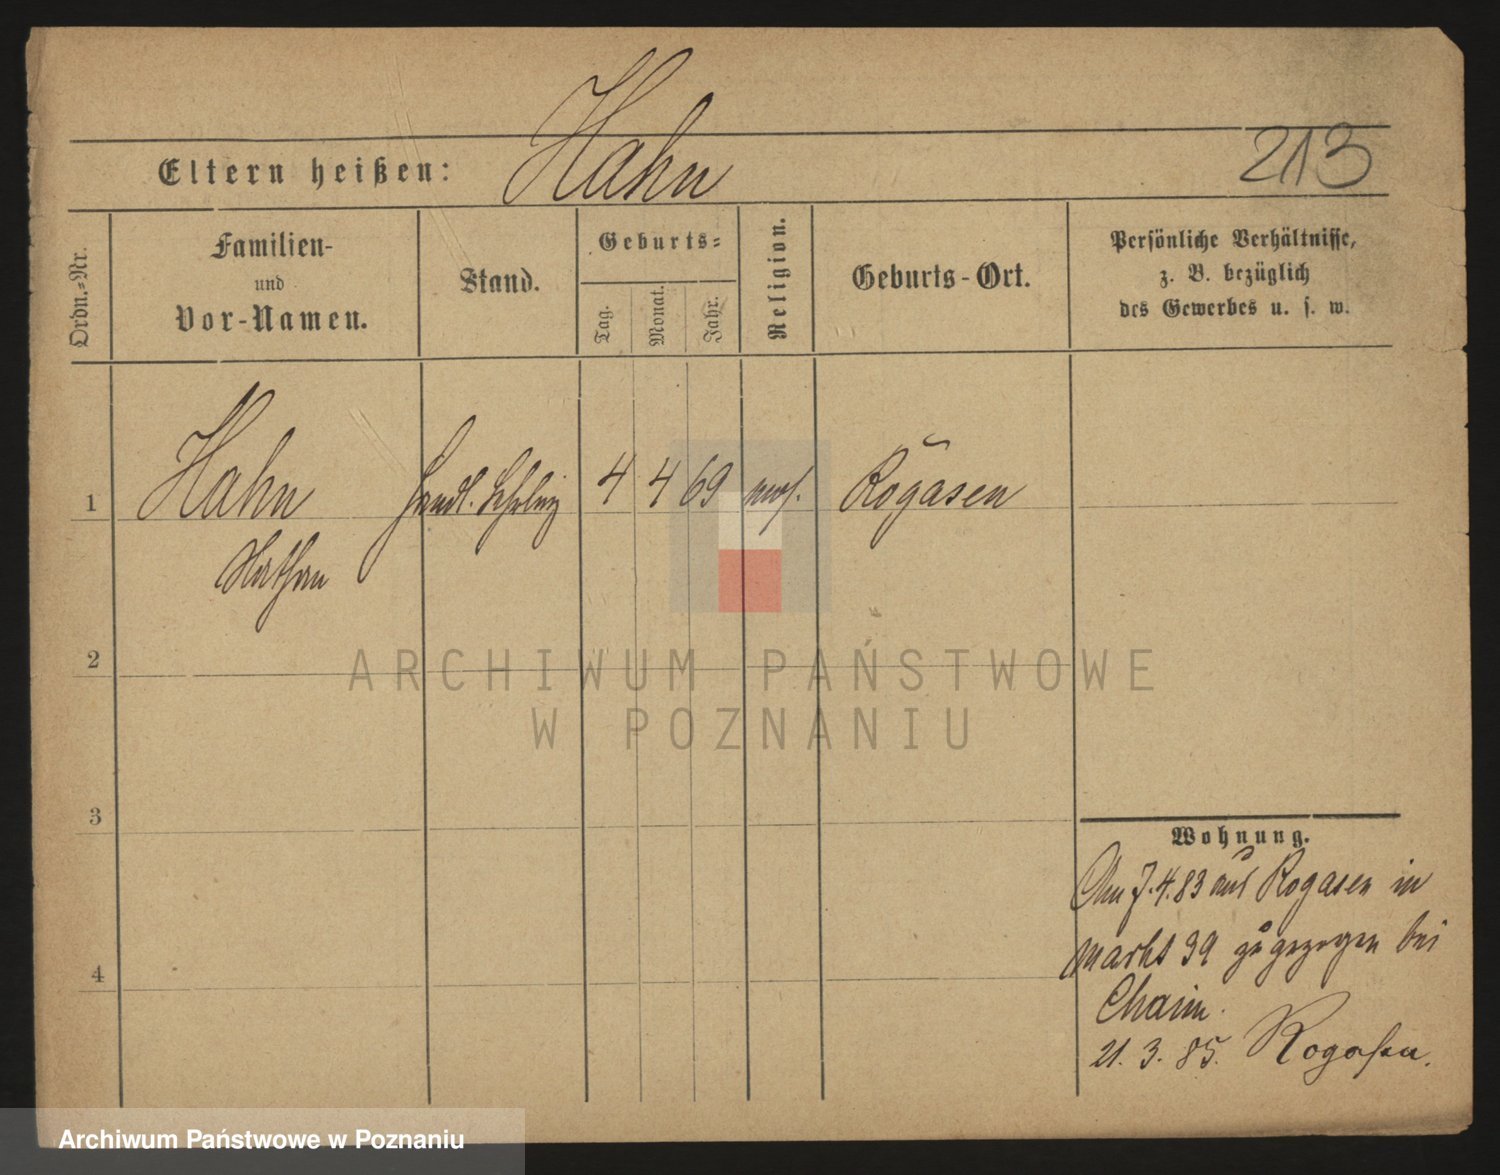 213
Eltern heißen: Hahn
Ordn.-Nr.
Familien-
und
Vor-Namen.
Stand.
Geburts-
Tag.
Monat.
Jahr.
Religion.
Geburts-Ort.
Persönliche Verhältnisse,
z. B. bezüglich
des Gewerbes u. s. w.
1 Hahn Handl. Lehrling 4 4 69 mos. Rogasen
Nathan
2
3
4
Wohnung.
Am 7.4.83 aus Rogasen in
Markt 39 zugezogen bei
Chaim.
21. 3. 85. Rogasen.
ARCHIWUM PAŃSTWOWE
W POZNANIU
Archiwum Państwowe w Poznaniu